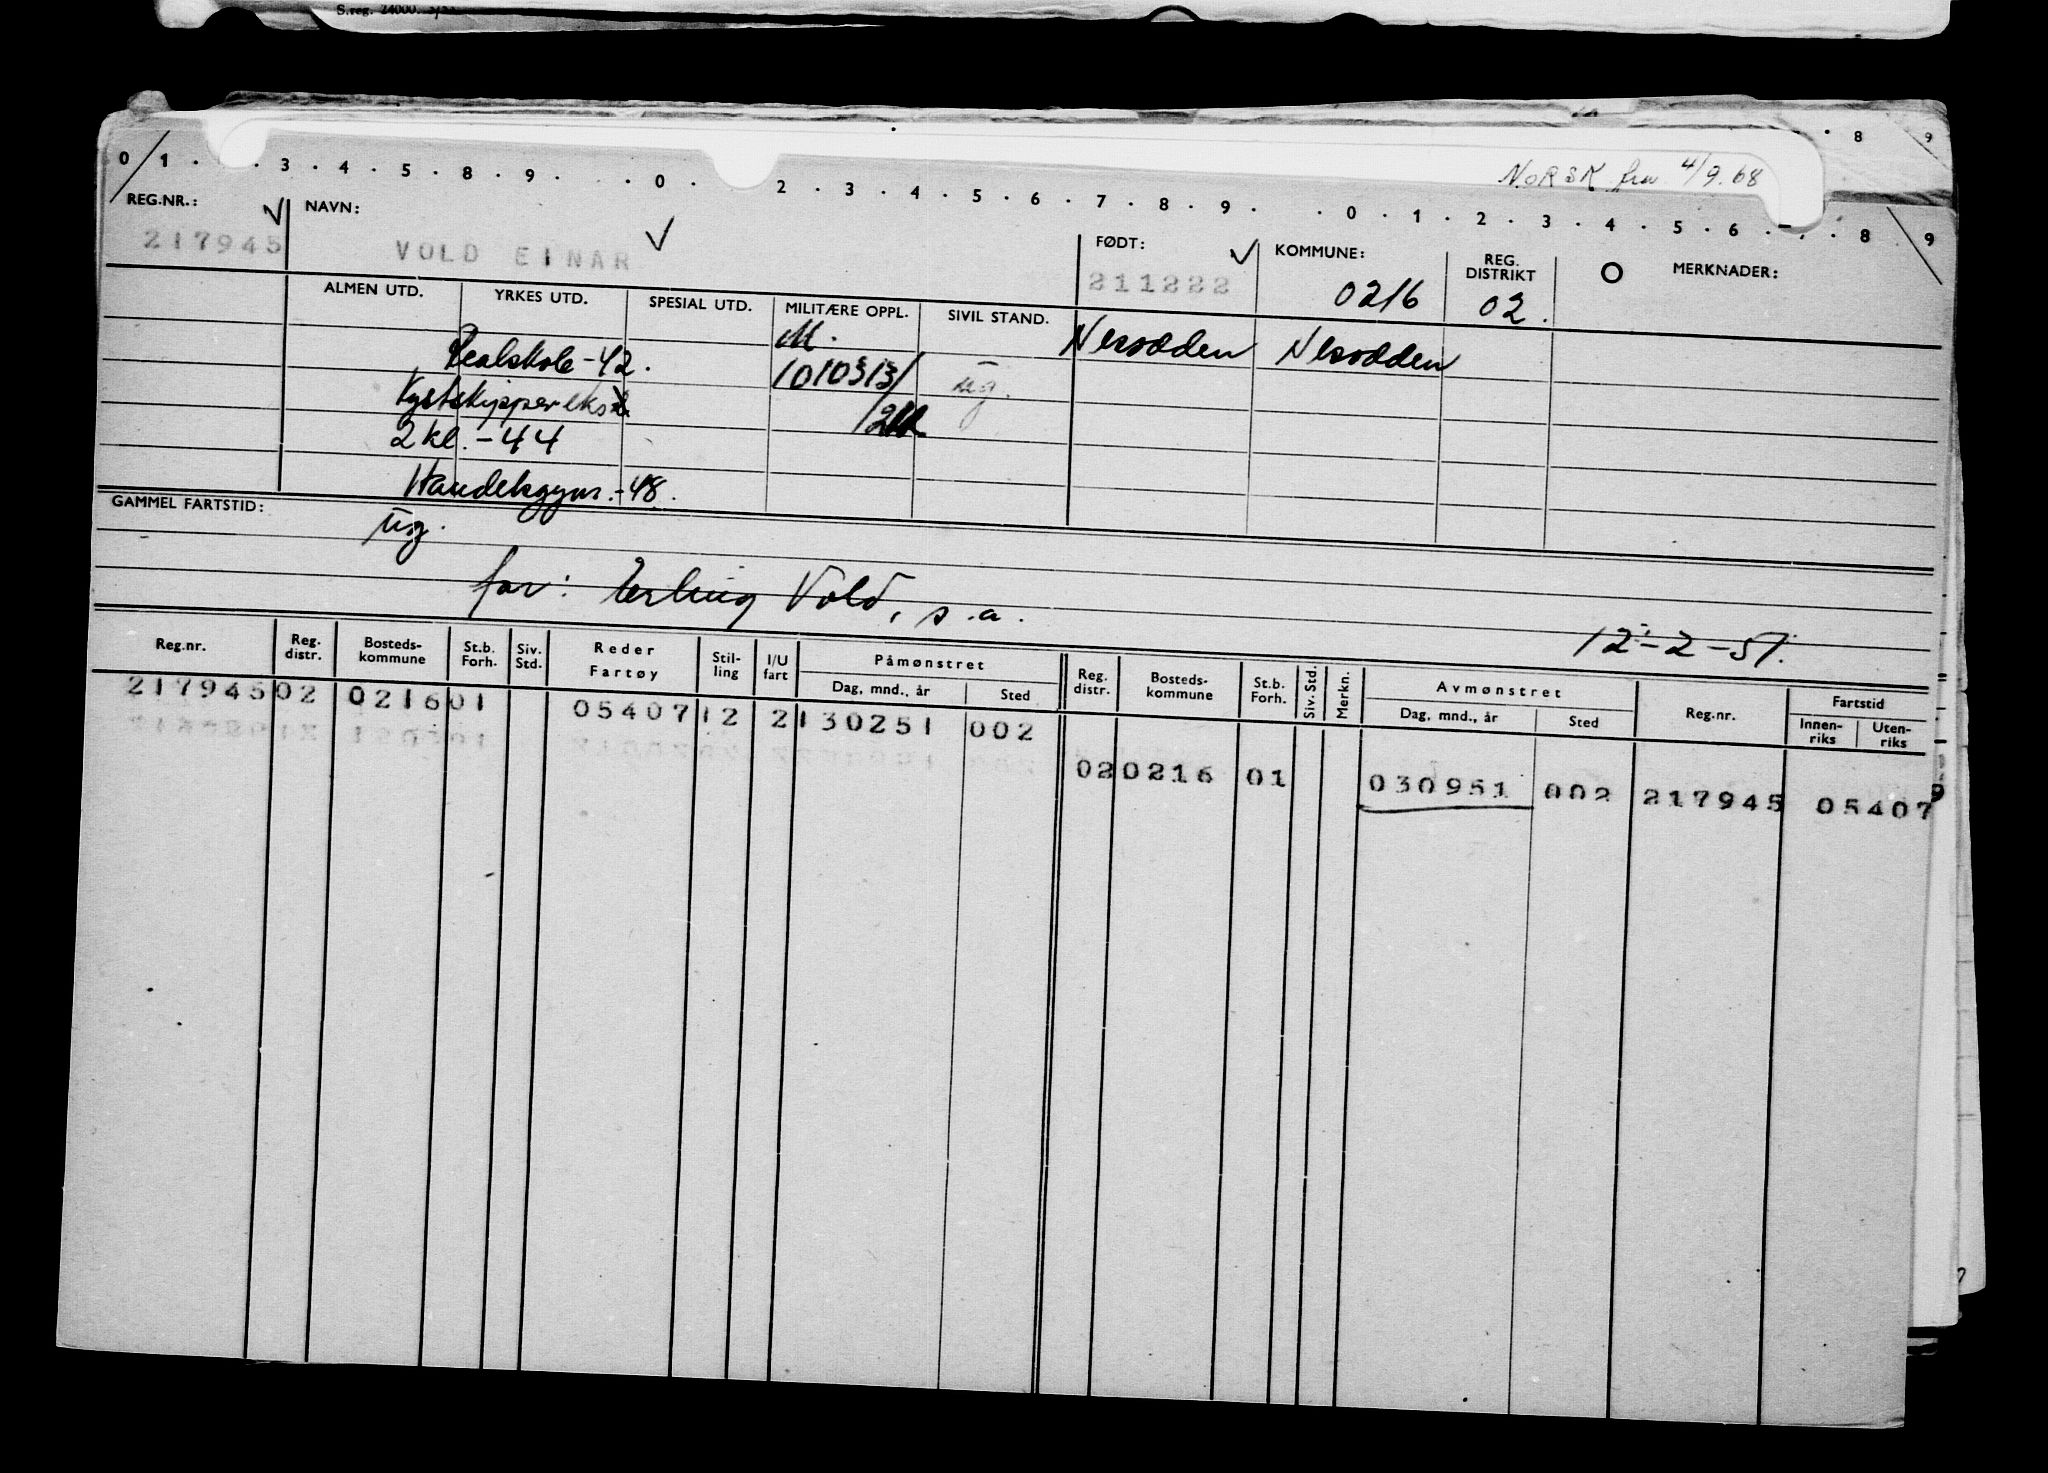 S.reg. 24000.
8 9
NORSK fra 4/9.68
0 1 . . 3 . 4 . 5 . 8 . 9 . . . 0 . 2 . 3 . 4 . 5 . 6 . 7 . 8 . 9 . . 0 . 1 . 2 . 3 . 4 . 5 . 6 . . 8 . 9
REG.NR.: NAVN: FØDT: KOMMUNE: REG. DISTRIKT MERKNADER:
217945 VOLD EINAR 211222 0216 02.
ALMEN UTD. YRKES UTD. SPESIAL UTD. MILITÆRE OPPL. SIVIL STAND.
Realskole -42. M. Nesodden Nesodden
Kystskippereks 1010313/ ug.
2 kl. -44
Handelsgym. -48.
GAMMEL FARTSTID: ug.
far: Erling Vold, s.a.
12-2-51.
Reg.nr. Reg. distr. Bosteds-kommune St.b. Forh. Siv. Std. Reder Fartøy Stil-ling I/U fart Påmønstret Dag, mnd., år Sted Reg. distr. Bosteds-kommune St.b. Forh. Siv. Std. Merkn. Avmønstret Dag, mnd., år Sted Reg.nr. Fartstid Innen-riks Uten-riks
217945 02 0216 01 05407 12 2 130251 002
02 0216 01 030951 002 217945 05407